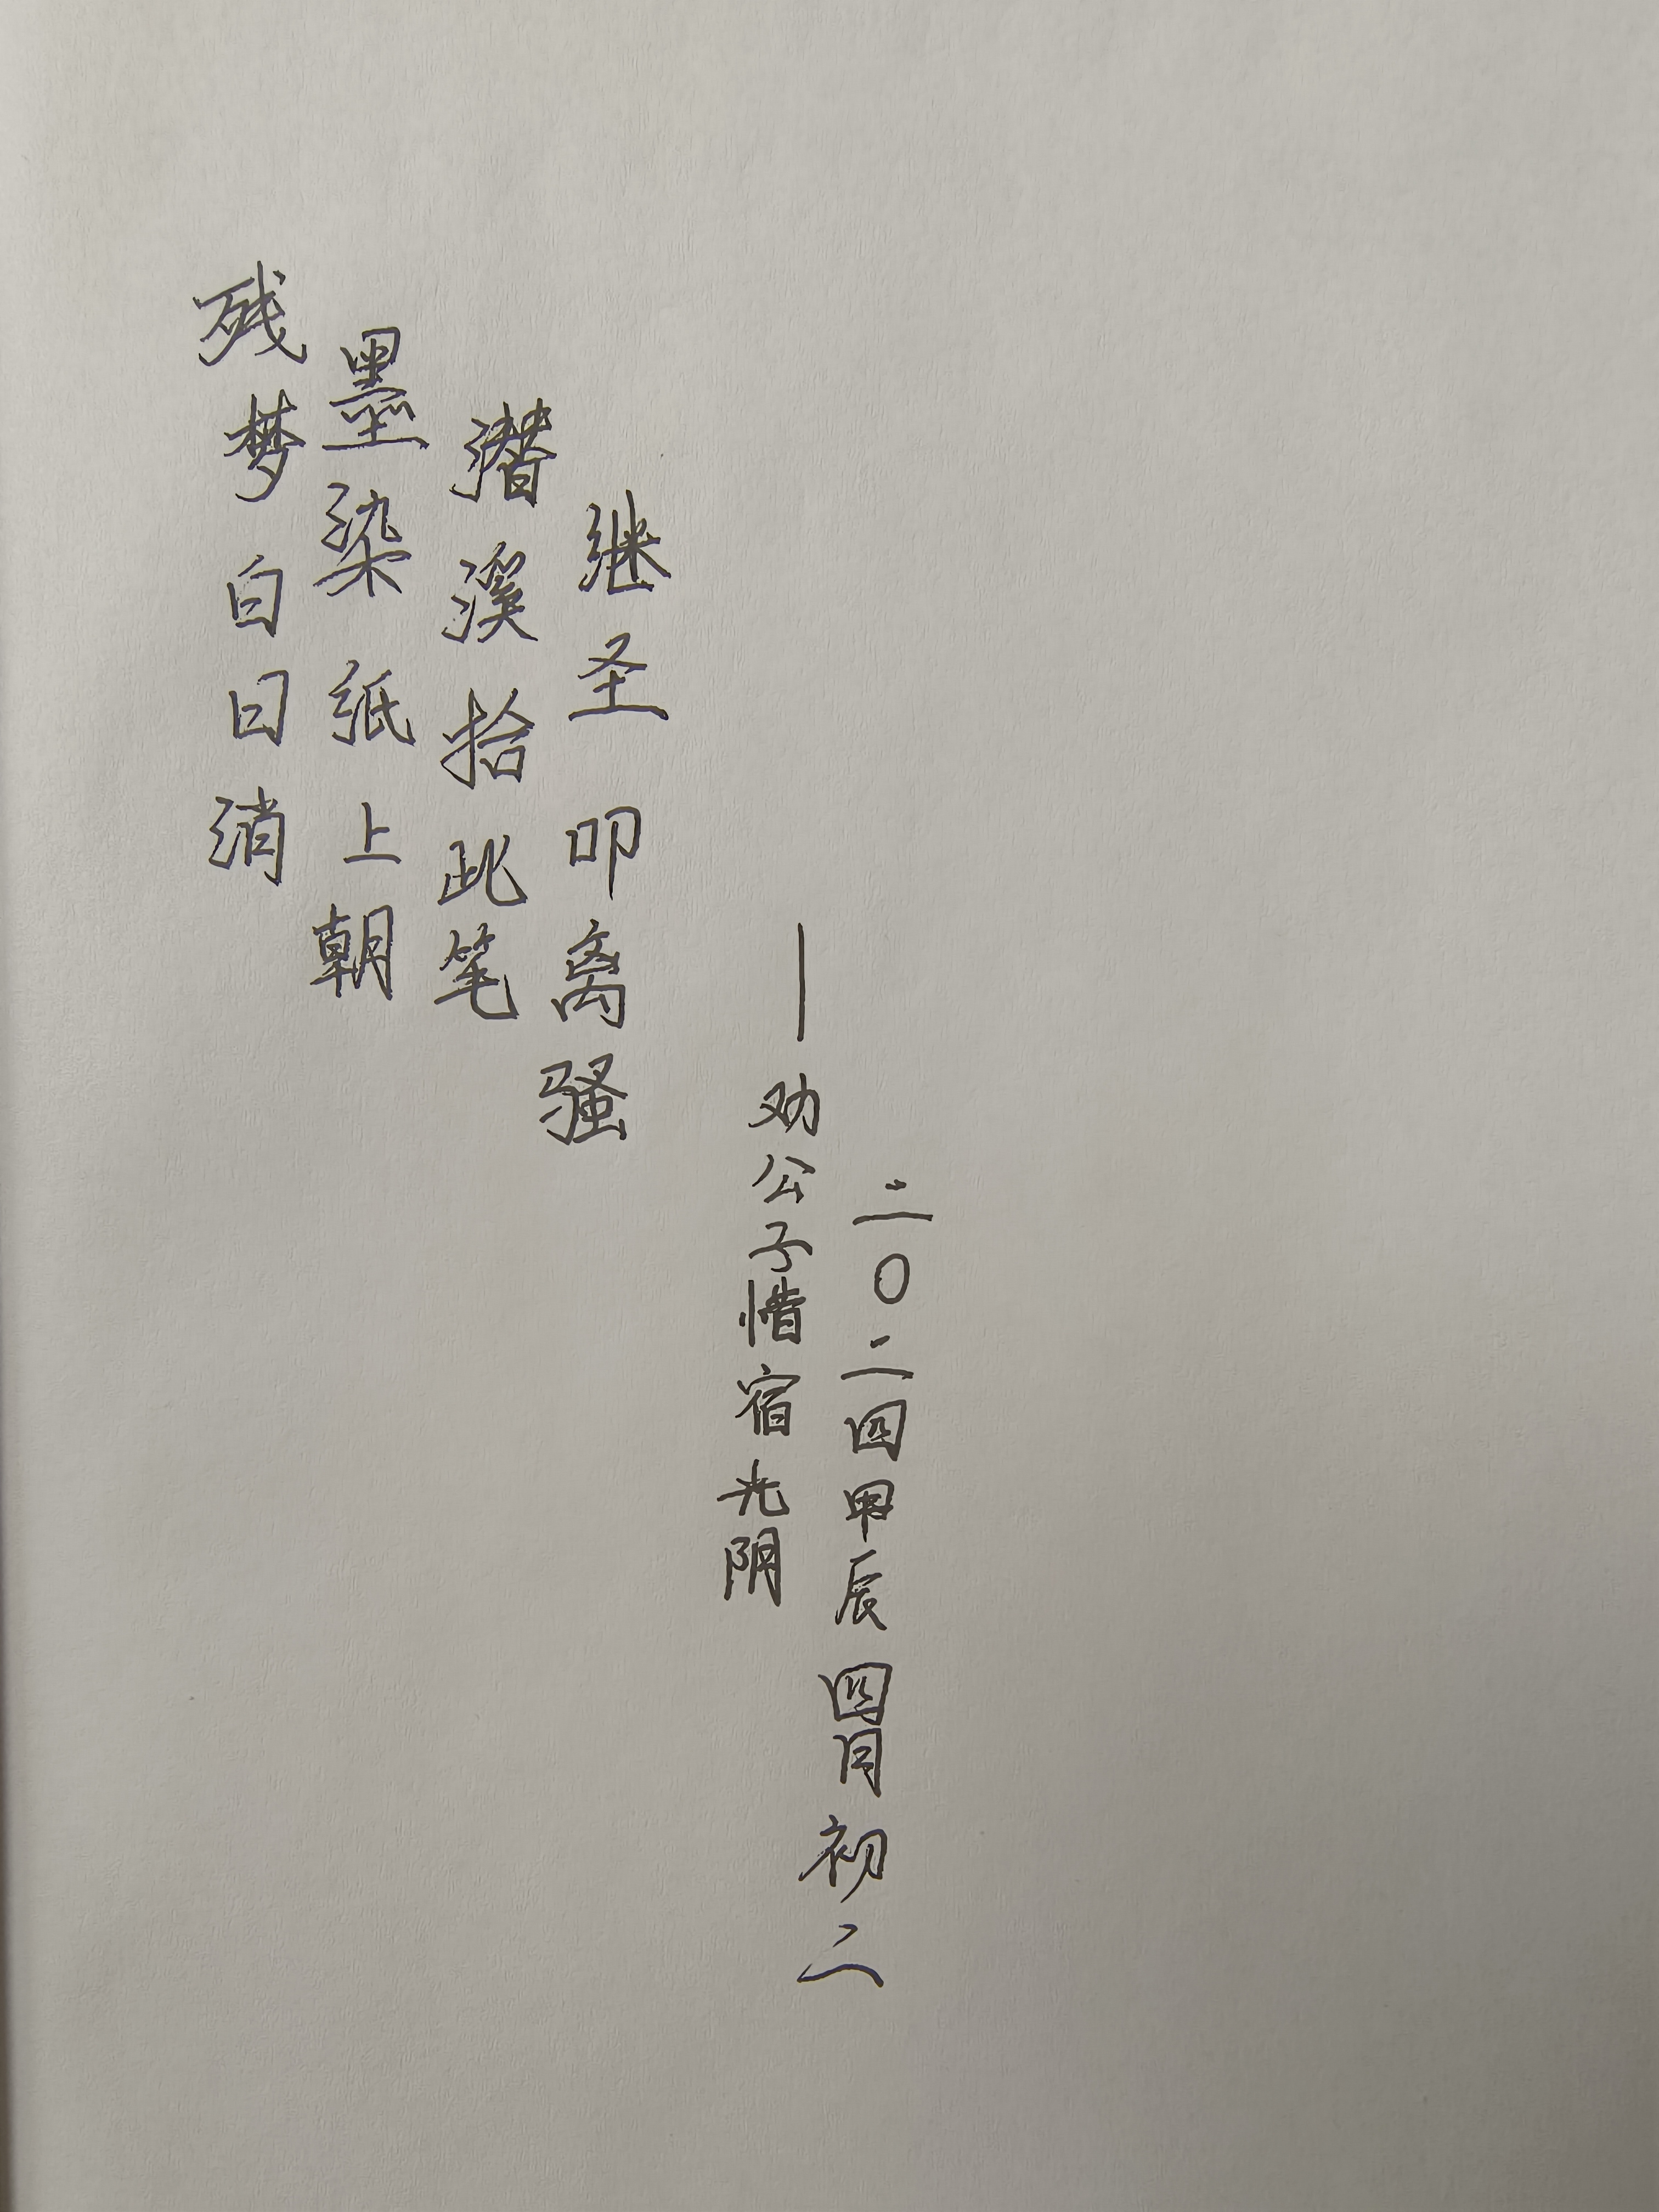 残梦白日消
墨染纸上朝
潜溪拾此笔
继圣叩离骚
—劝公子惜宿光阴
二〇二四甲辰四月初二